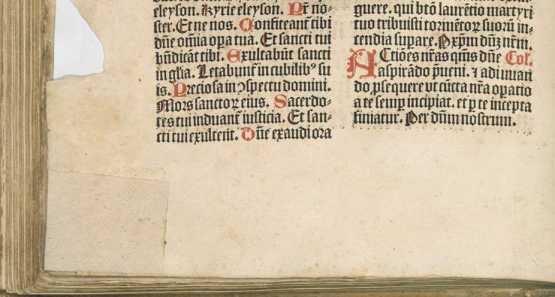 eleyson. Kyrie eleyson. Pr̄ no-
ster. Et ne nos. Confiteant̄ tibi
dn̄e om̄ia oꝑa tua. Et sancti tui
bn̄dicāt tibi. Exultabūt sancti
in gl̄ia. Letabunt̄ in cubilibꝰ su
is. Preciosa in ꝯspectu domini.
Mors sanctoꝝ eius. Sacerdo-
tes tui induant̄ iusticia. Et san-
cti tui exultent. Dn̄e exaudi ora
quere. qui btō laurētio martyri
tuo tribuisti tormētoꝝ suoꝝ in-
cendia suꝑare. Per xp̄m dn̄m nr̄m.
Actiōes nr̄as qm̄s dn̄e Col.
aspirādo p̄ueni. ⁊ adiuuan
do ꝓsequere ut cūcta nr̄a or̄atio
a te semꝑ incipiat. et ꝑ te incepta
finiatur. Per dn̄m nostrum.